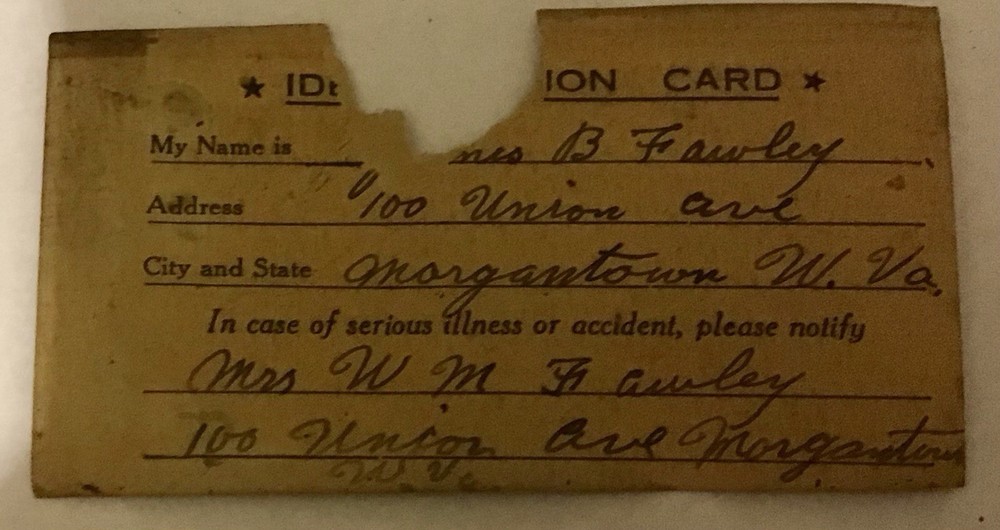 ★ IDE ION CARD ★
My Name is nes B Fawley
Address 100 Union Ave
City and State Morgantown W. Va.
In case of serious illness or accident, please notify
Mrs W M Fawley
100 Union Ave Morgantown
W. Va.